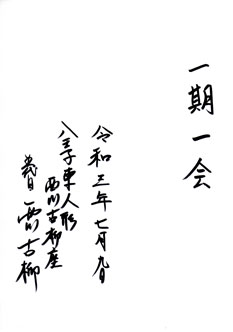 一期一会
令和三年七月九日
八王子車人形
西川古柳座
西川古柳